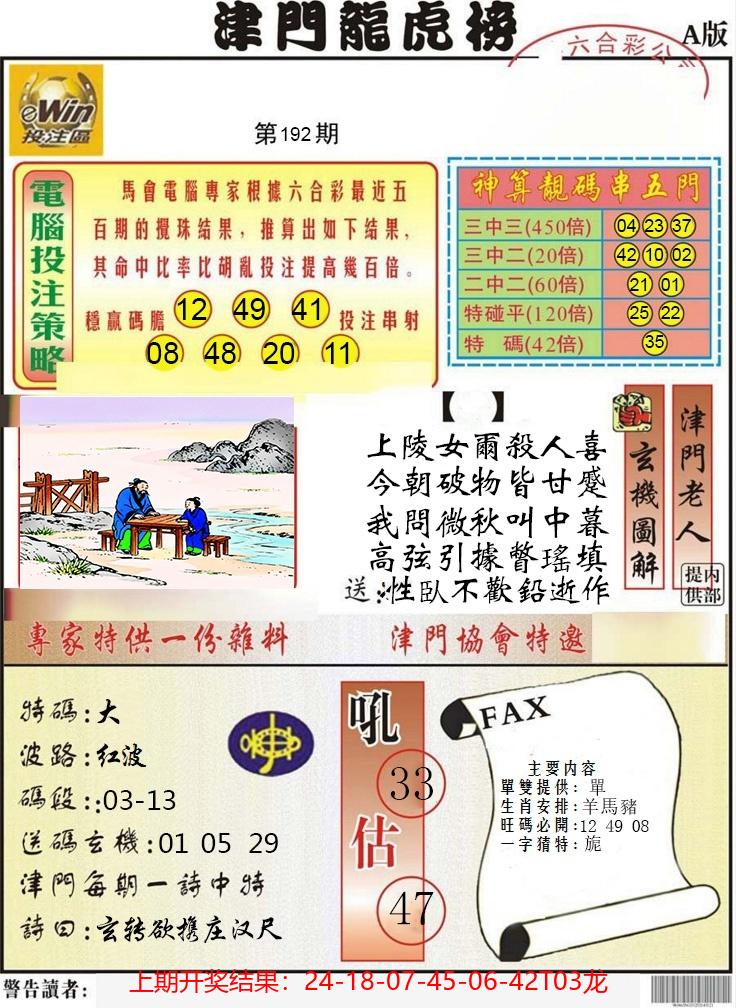 津門龍虎榜
A版
六合彩公
eWin
投注區
第192期
電腦投注策略
馬會電腦專家根據六合彩最近五
百期的攪珠结果，推算出如下结果，
其命中比率比胡亂投注提高幾百倍。
穩贏碼膽 12 49 41 投注串射
08 48 20 11
神算靚碼串五門
三中三(450倍) 04 23 37
三中二(20倍) 42 10 02
二中二(60倍) 21 01
特碰平(120倍) 25 22
特 碼(42倍) 35
【 】
上陵女爾殺人喜
今朝破物皆甘蹙
我問微秋叫中暮
高弦引據瞥瑤填
送:性臥不歡鉛逝作
玄機圖解
津門老人
内部提供
專家特供一份雜料
津門協會特邀
特碼:大
波路:红波
碼段::03-13
送碼玄機:01 05 29
津門每期一詩中特
詩曰:玄转欲携庄汉尺
吼
33
估
47
FAX
主要内容
單雙提供: 單
生肖安排:羊馬豬
旺码必開:12 49 08
一字猜特:旎
警告讀者:
上期开奖结果：24-18-07-45-06-42T03龙